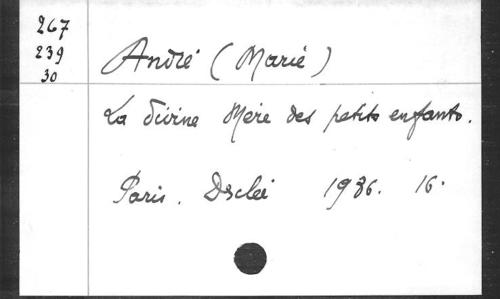 267
239
30
André (Marie)
La divine Mère des petits enfants.
Paris. Dsclée 1936. 16.